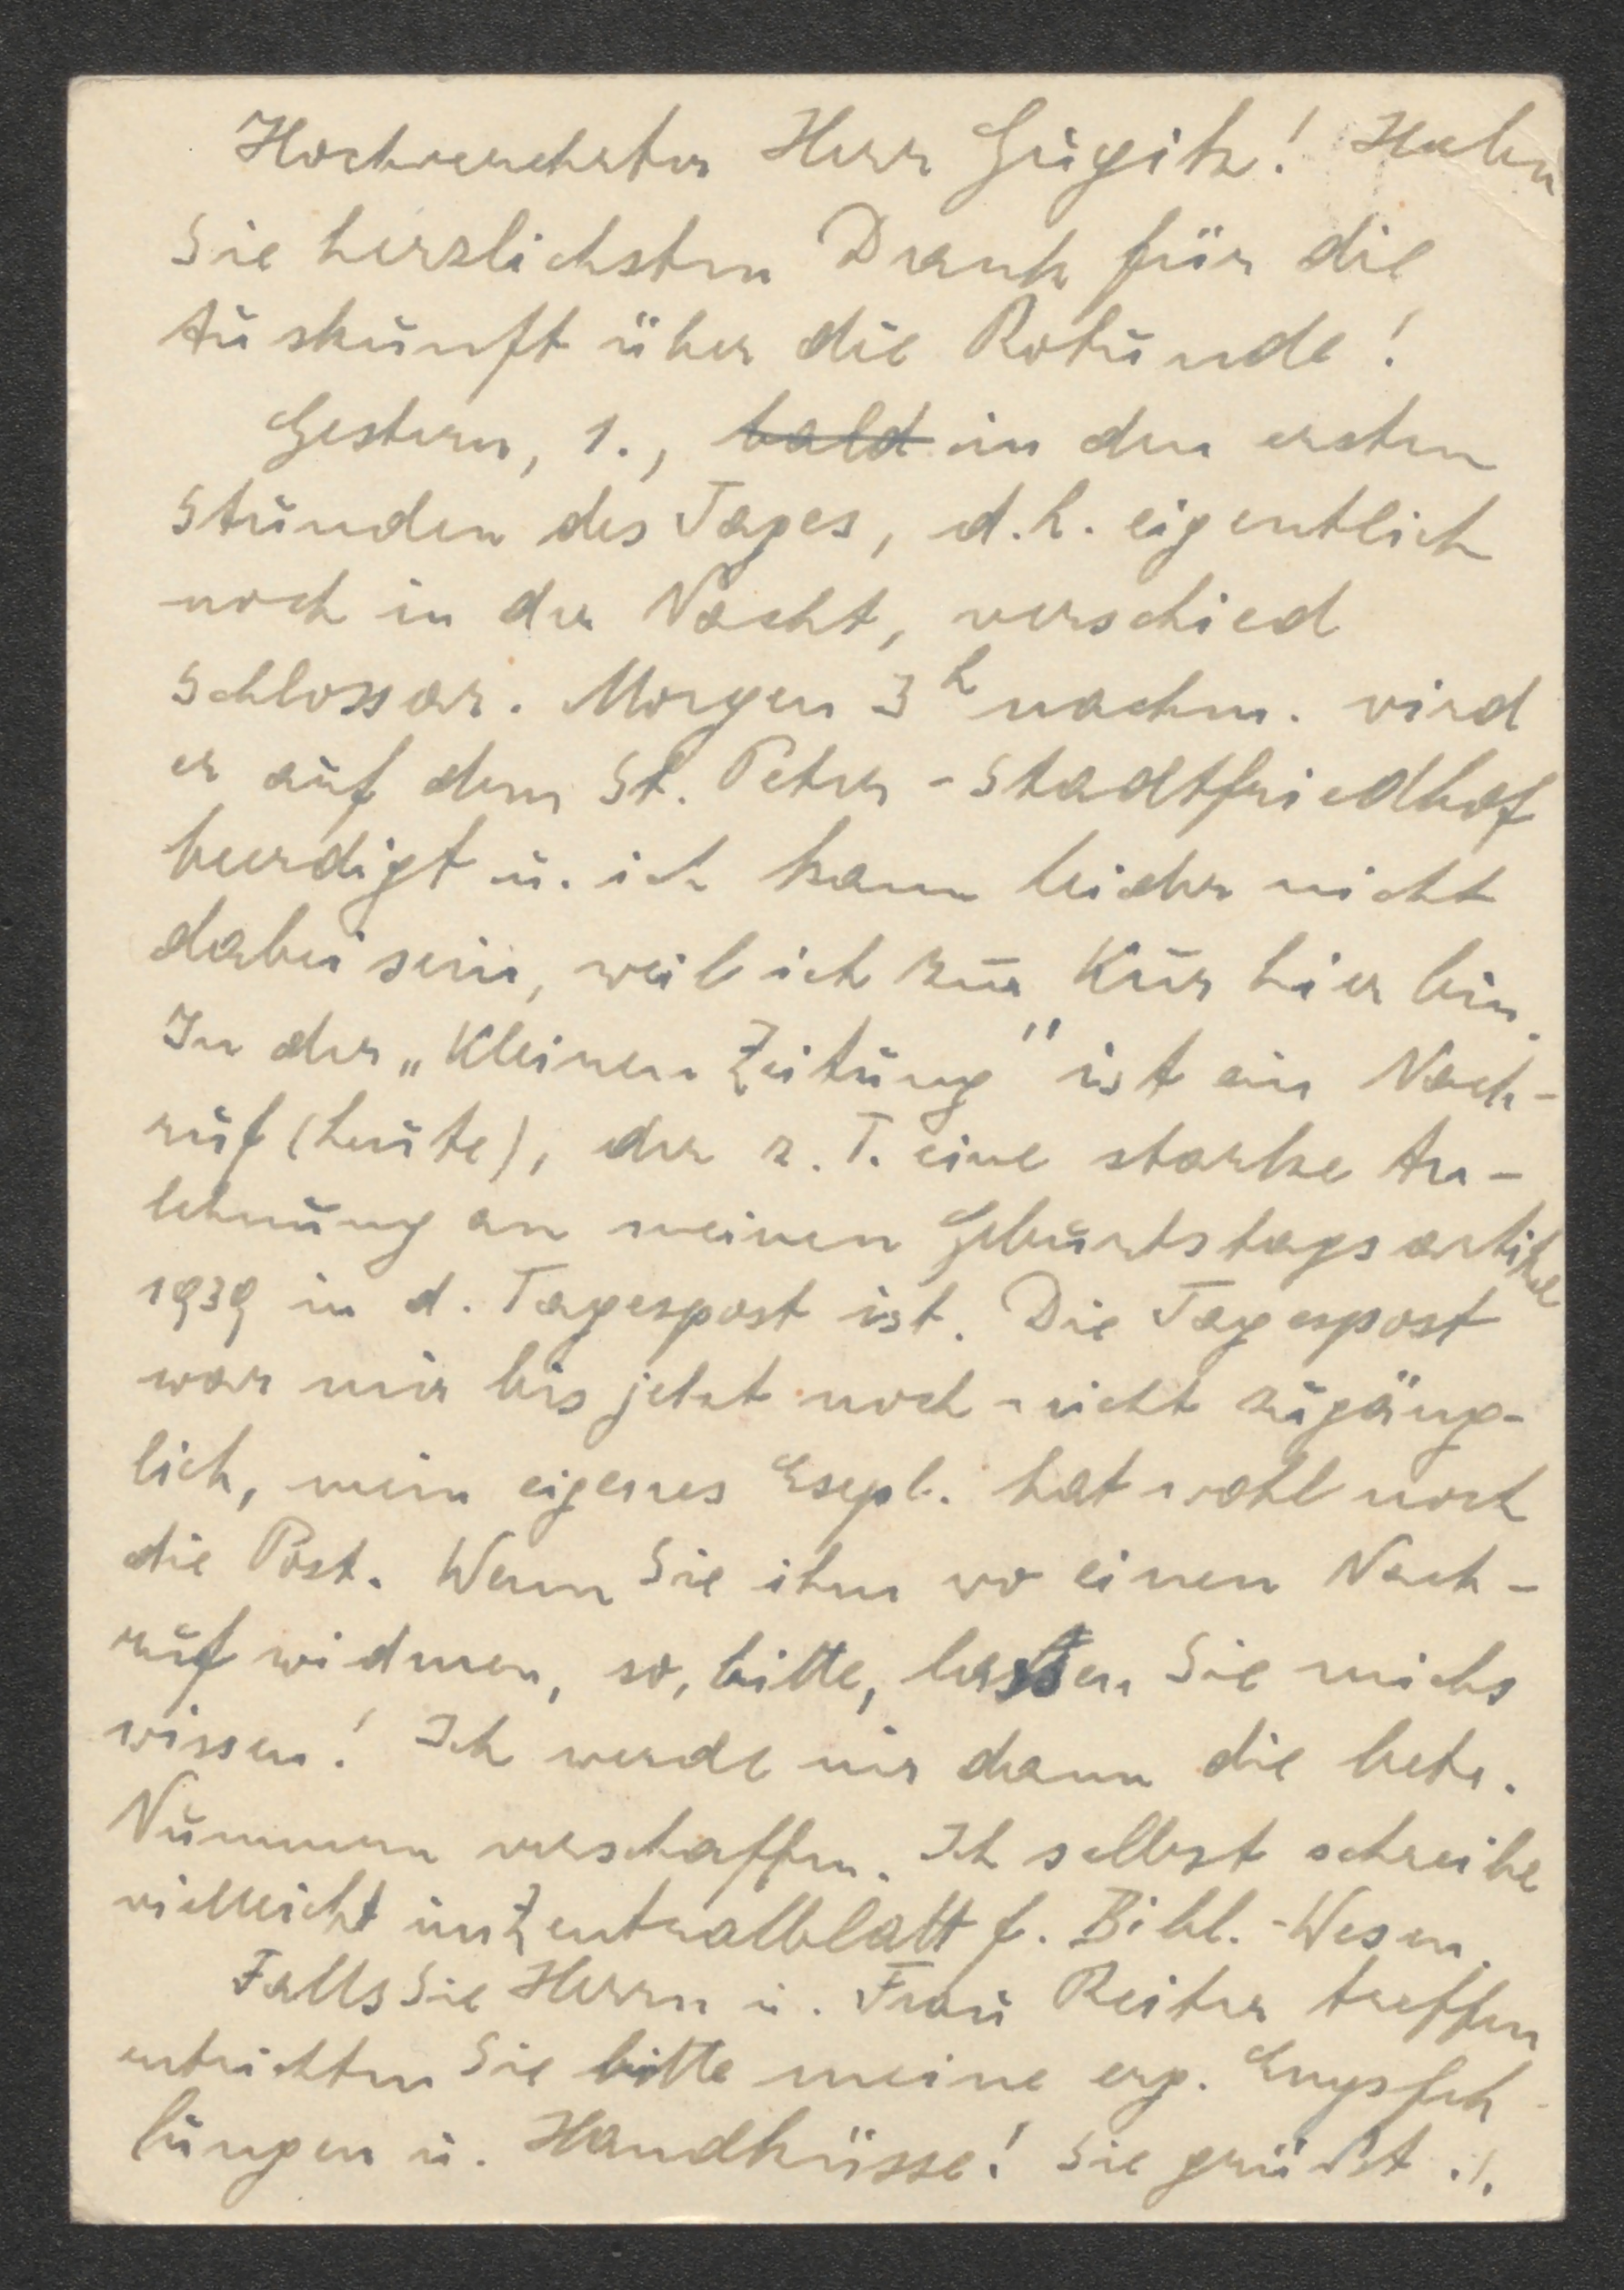 Hochverehrter Herr Gugitz! Haben
Sie herzlichsten Dank für die
Auskunft über die Rotunde!
Gestern, 1., bald in den ersten
Stunden des Tages, d.h. eigentlich
noch in der Nacht, verschied
Schlossar. Morgen 3h nachm. wird
er auf dem St. Peter-Stadtfriedhof
beerdigt u. ich kann leider nicht
dabei sein, weil ich zur Kur hier bin.
In der „Kleinen Zeitung" ist ein Nach-
ruf (heute), der z. T. eine starke An-
lehnung an meinen Geburtstagsartikel
1939 in d. Tagespost ist. Die Tagespost
war mir bis jetzt noch nicht zugäng-
lich, mein eigenes Expl. hat wohl noch
die Post. Wenn Sie ihm wo einen Nach-
ruf widmen, so, bitte, lassen Sie michs
wissen! Ich werde mir dann die betr.
Nummern verschaffen. Ich selbst schreibe
vielleicht im Zentralblatt f. Bibl.-Wesen.
Falls Sie Herrn u. Frau Reiter treffen
entrichten Sie bitte meine erg. Empfeh-
lungen u. Handküsse! Sie grüßt